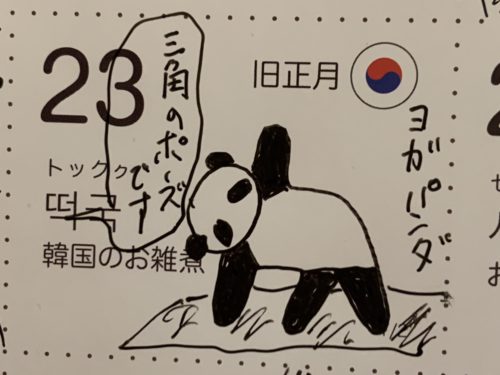 23
旧正月
トックク
떡국
韓国のお雑煮
三角のポーズ
です
ヨガパンダ